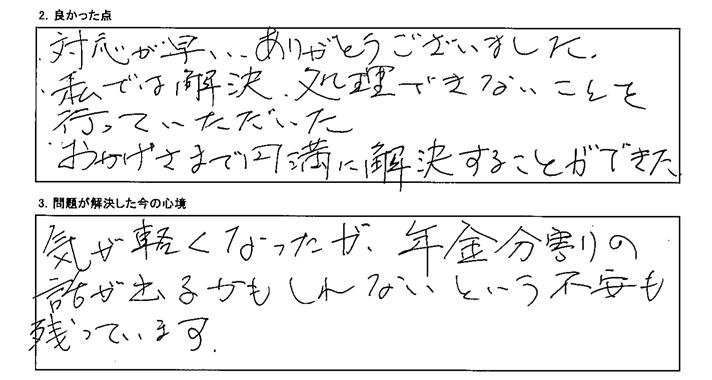 2. 良かった点
・対応が早い、ありがとうございました。
・私では解決、処理できないことを
行っていただいた
・おかげさまで円満に解決することができた
3. 問題が解決した今の心境
気が軽くなったが、年金分割りの
話が出るかもしれないという不安も
残っています。